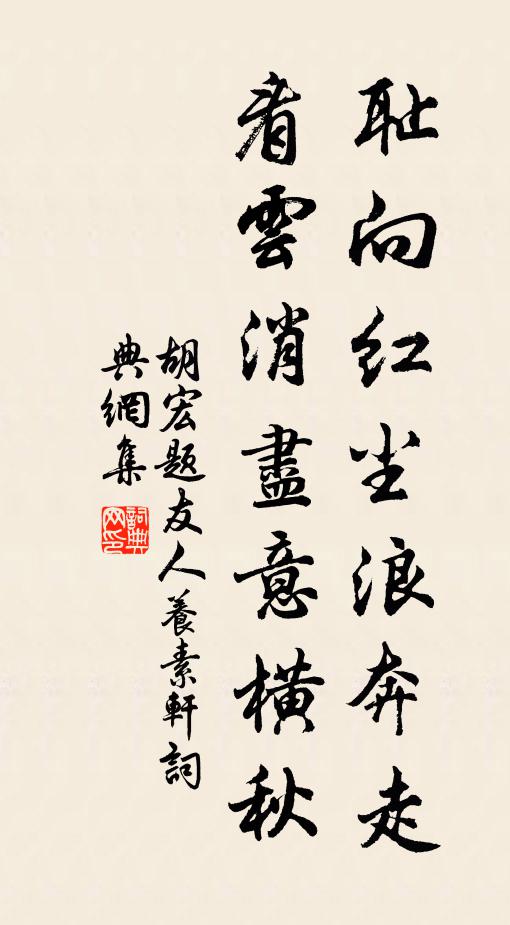 耻向红尘浪奔走
看雲消盡意横秋
胡宏题友人養素軒詞
典網集
詞典網印